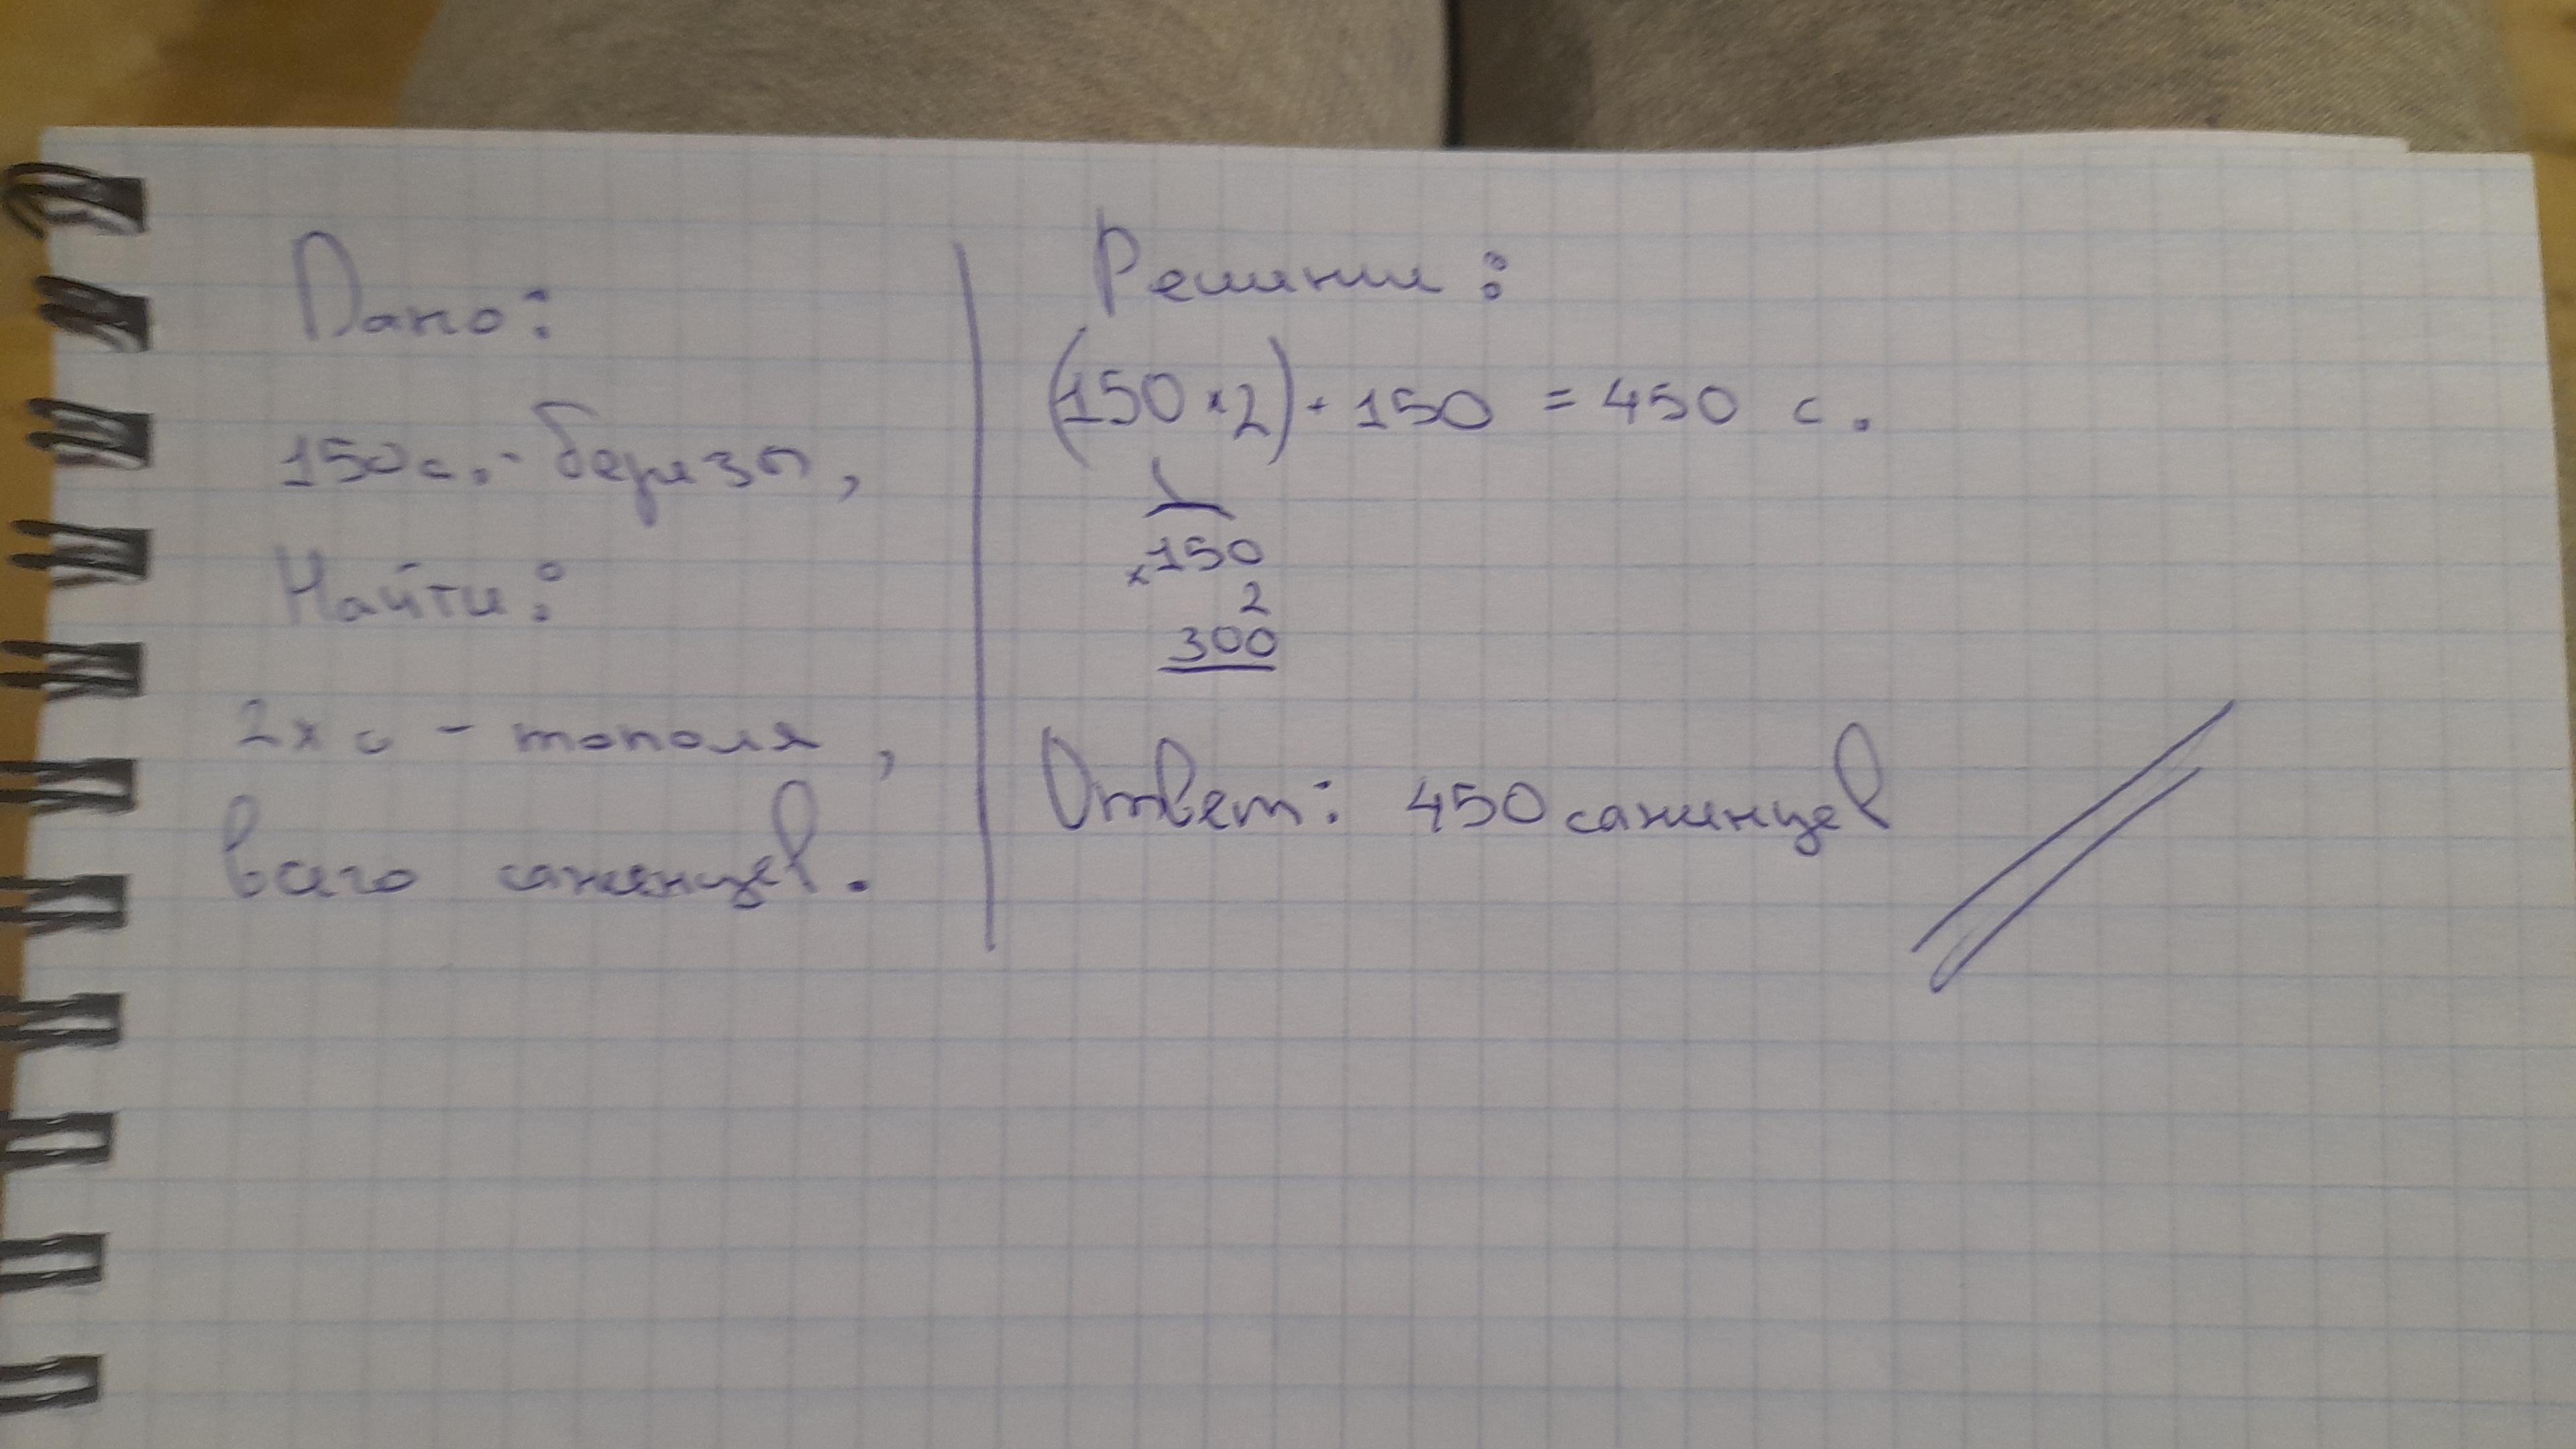 Дано:
150с. - березы,
Найти:
2х с - тополя,
всего саженцев.
Решение:
(150 × 2) + 150 = 450 с.
×150
2
300
Ответ: 450 саженцев